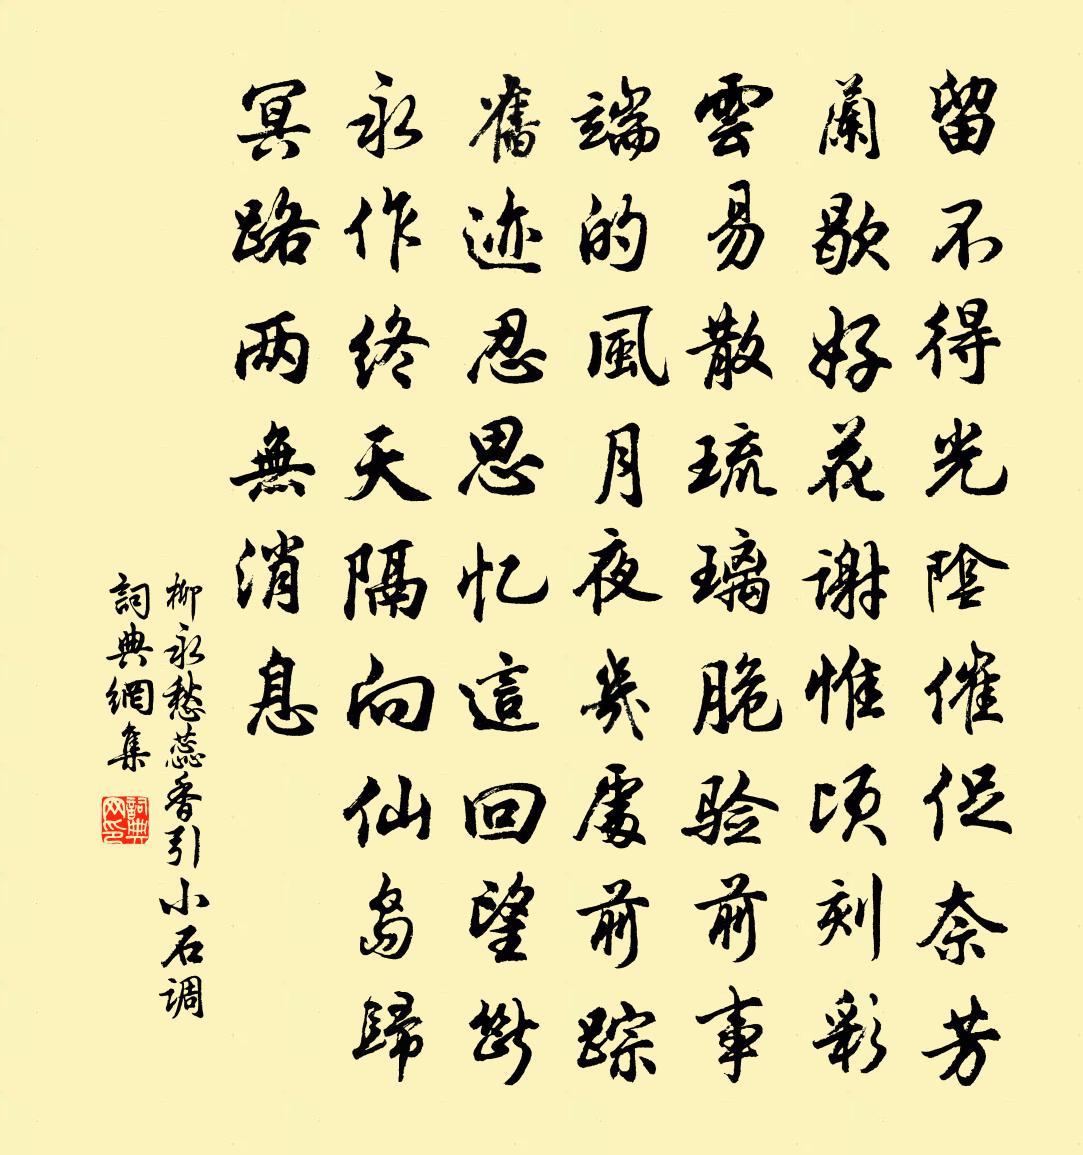 留不得光陰催促奈芳
蘭歇好花謝惟顷刻彩
雲易散琉璃脆验前事
端的風月夜幾處前踪
舊迹忍思忆這回望斷
永作终天隔向仙岛歸
冥路两無消息
柳永愁蕊香引小石调
詞典網集
詞典网印